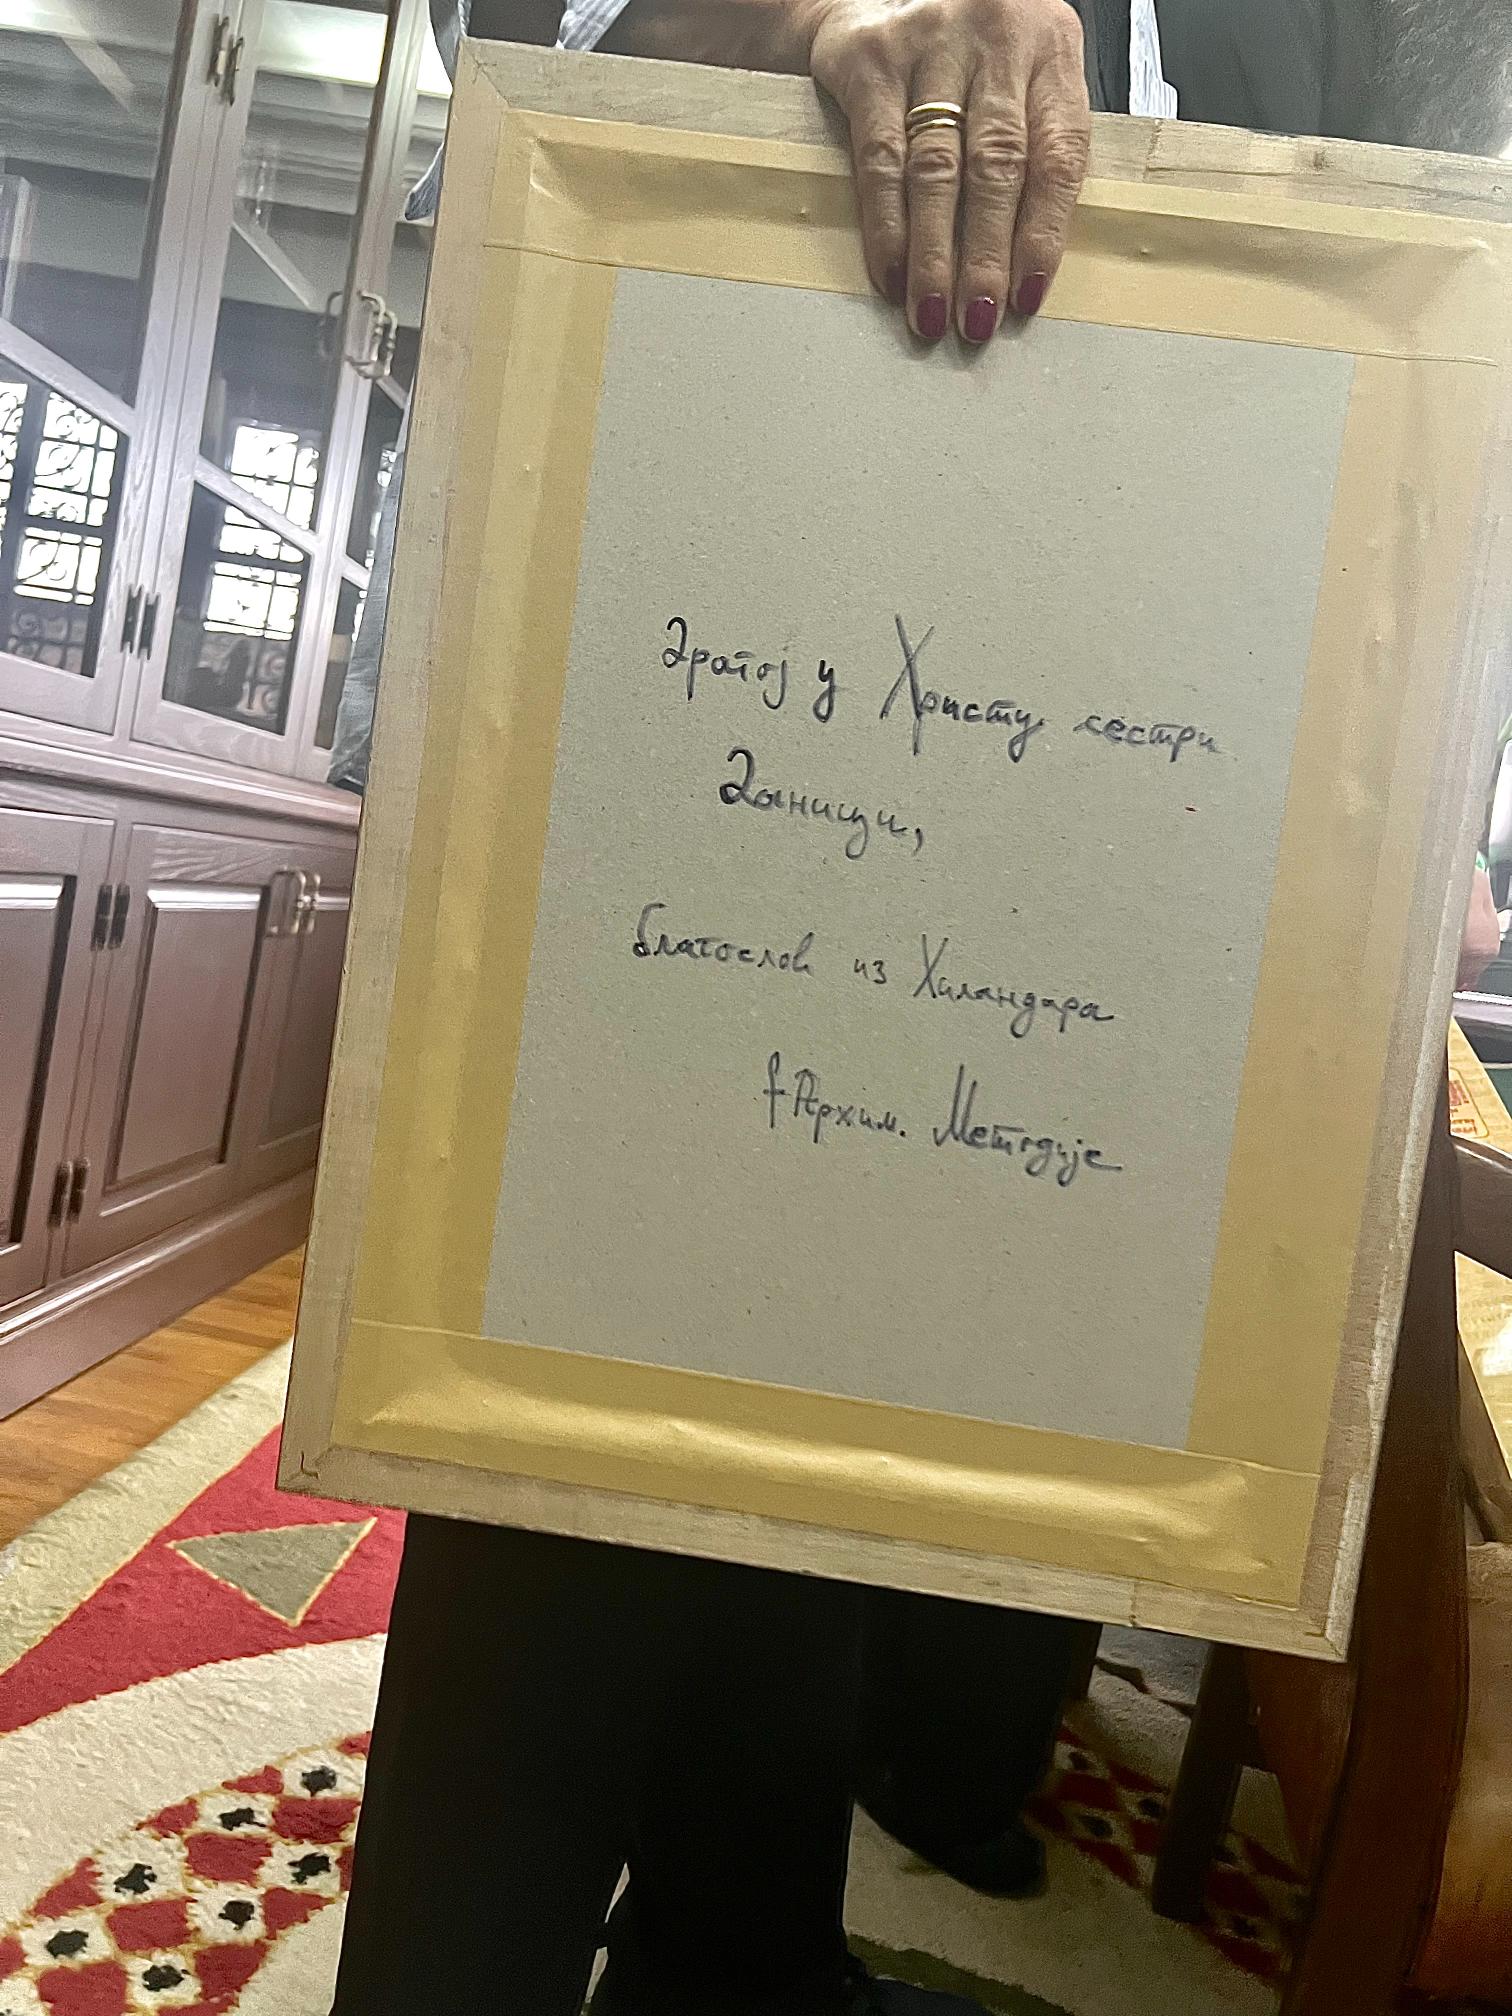 Драгој у Христу сестри
Даници,
благослов из Хиландара
+Архим. Методије